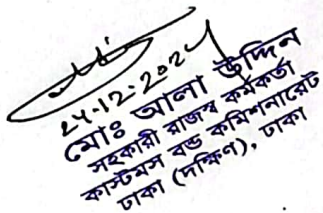 24.12.2024
মোঃ আলা উদ্দিন
সহকারী রাজস্ব কর্মকর্তা
কাস্টমস বন্ড কমিশনারেট
ঢাকা (দক্ষিণ), ঢাকা